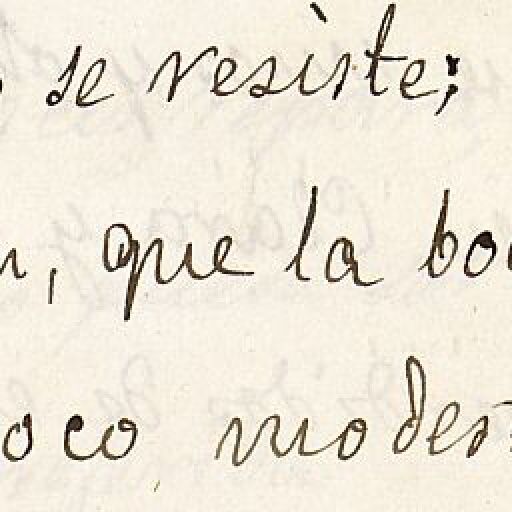 se resiste;
, que la bo
oco modes